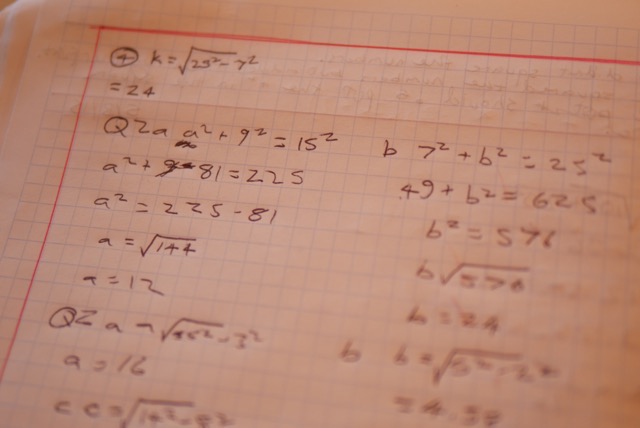 ④ k = √25² - 7²
= 24
Q2a a² + 9² = 15²
a² + 81 = 225
a² = 225 - 81
a = √144
a = 12
b 7² + b² = 25²
49 + b² = 625
b² = 576
b √576
b = 24
Q2 a
a = 16
b b = √5² - 2²